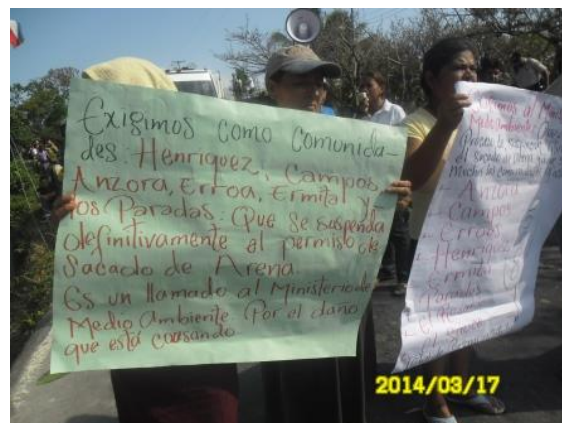 Exigimos como comunida-
des: Henriquez, Campos,
Anzora, Erroa, Ermita y
los Paradas: Que se suspenda
definitivamente el permiso de
Sacado de Arena.
Es un llamado al Ministerio de
Medio Ambiente Por el daño
que está causando
al
Medio Ambiente
Anzora
Campos
Erroas
Henriquez
Ermita
2014/03/17